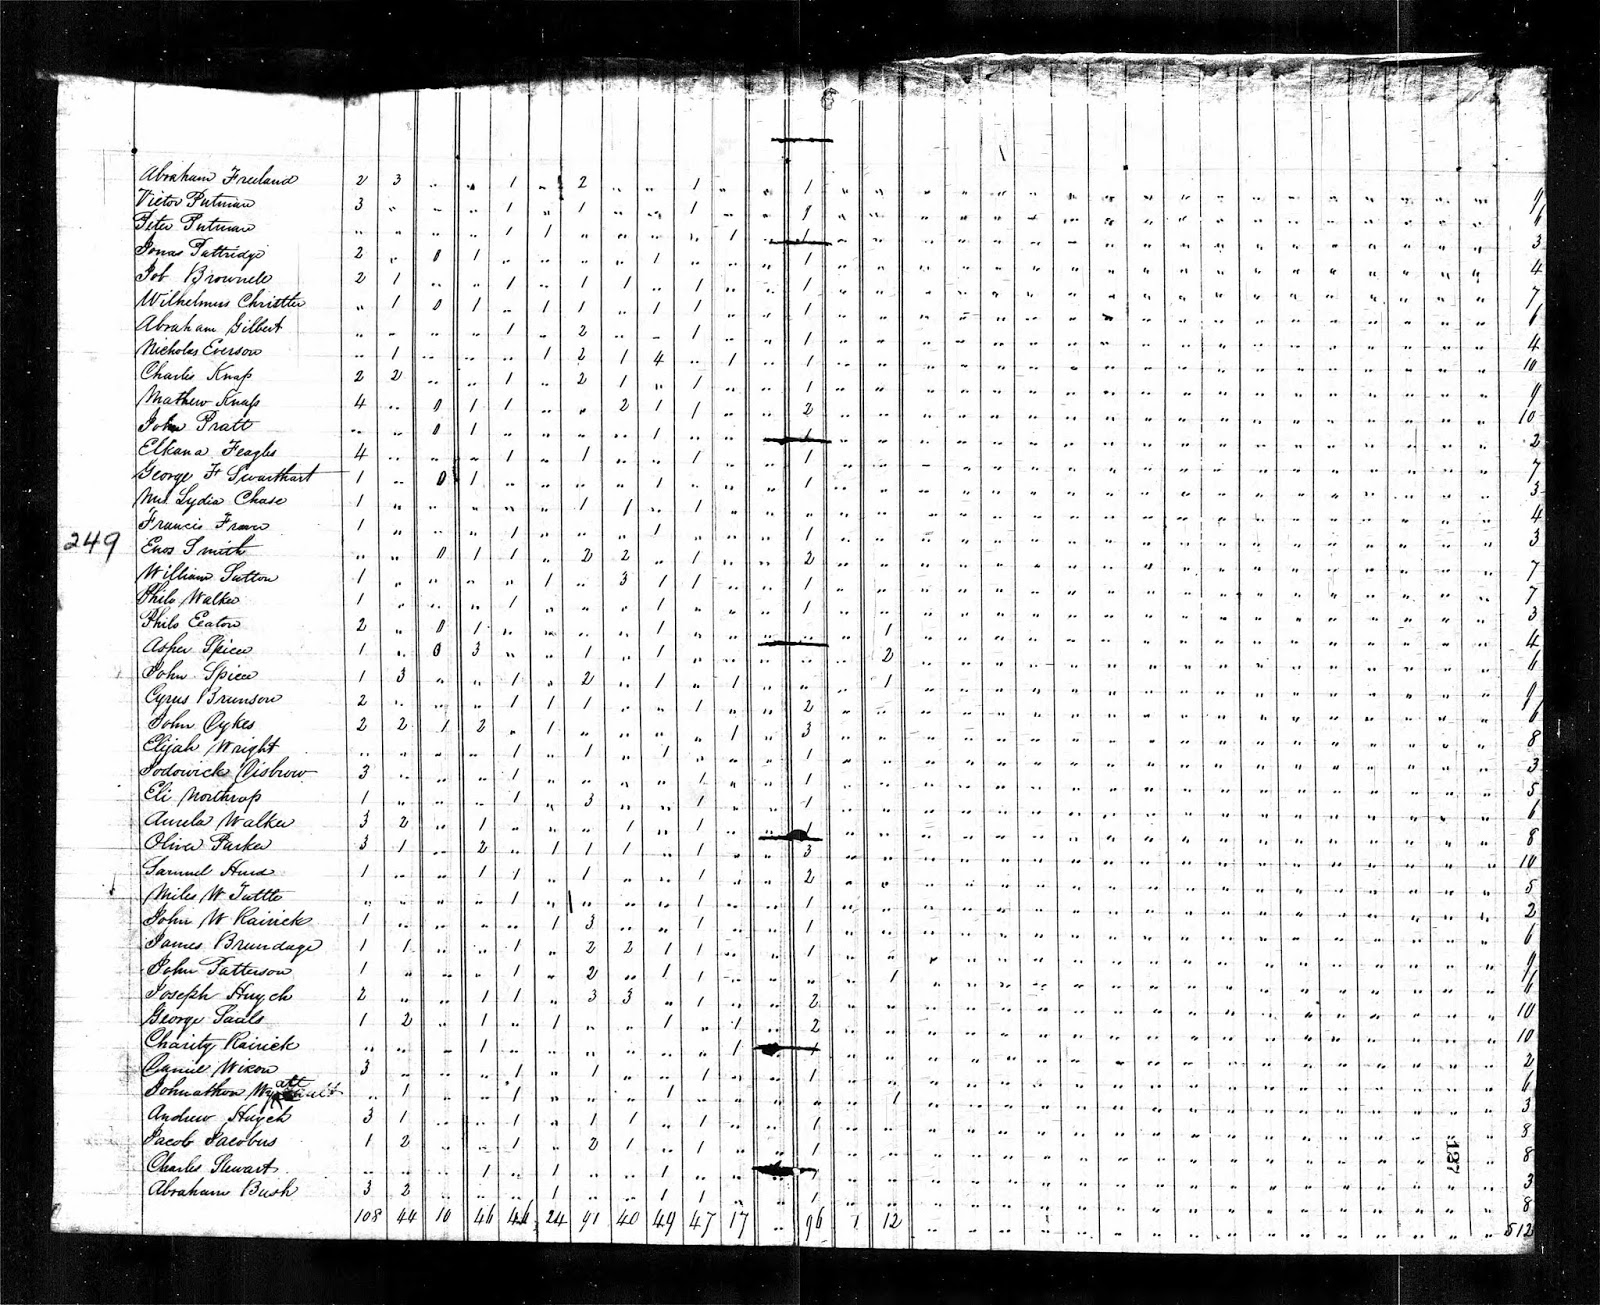 6
Abraham Freeland 2 3 " " 1 " 2 " " 1 " " 1 " " 9
Victor Putman 3 " " " 1 " 1 " " 1 " " 9 " " 6
Peter Putman " " " " 1 1 " " " " 1 " 1 " " 3
Jonas Pattridge 2 " 0 1 " " " " 1 " " " 1 " " 4
Job Brownell 2 1 " " 1 1 1 1 " 1 " " 1 " " 7
Wilhelmus Christler " 1 0 1 " 1 1 " 1 1 " " 1 " " 6
Abraham Gilbert " " " " 1 " 2 " " 1 " " 1 " " 4
Nicholas Everson " 1 " " " 1 2 1 4 " 1 " 1 " " 10
Charles Knap 2 2 " " 1 " 2 1 " 1 " " 1 " " 9
Mathew Knap 4 " 0 1 1 " " 2 1 1 " " 2 " " 10
John Pratt " " 0 1 " " " " 1 " " " 1 " " 2
Elkana Feagles 4 " " " 1 " 1 " " 1 " " 1 " " 7
George F Swarthart 1 " 0 1 " " " " 1 " " " 1 " " 3
Mrs Lydia Chase 1 " " " " " 1 1 " 1 " " " " " 4
Francis 1 " " " 1 " " " 1 " " " 1 " " 3
249
Enos Smith " " 0 1 1 " 2 2 " 1 " " 2 " " 7
William Sutton 1 " " " " 1 " 3 1 1 " " 1 " " 7
Philo Walker 1 " " " 1 " " " 1 " " " 1 " " 3
Philo Eaton 2 " 0 1 " " " " 1 " " " " " 1 4
Asher Spicer 1 " 0 3 " " 1 " 1 " " " " " 2 6
John Spicer 1 3 " " 1 " 2 " 1 " 1 " " " 1 9
Cyrus Brunson 2 " " " 1 1 1 " " 1 " " 2 " " 6
John Dykes 2 2 1 2 " 1 " " " " 1 " 3 " " 8
Elijah Wright " " " " 1 " 1 " 1 " " " 1 " " 3
Lodowick Disbrow 3 " " " 1 " " " " 1 " " 1 " " 5
Eli Northrop 1 " " " 1 " 3 " " 1 " " 1 " " 6
Walker 3 2 " 1 " " " 1 " 1 " " 1 " " 8
Oliver Parker 3 1 " 2 " 1 1 1 " 1 " " 3 " " 10
Samuel Hurd 1 " " 1 1 " 1 " " 1 " " 2 " " 5
Miles W Tuttle " " " " 1 " " " " 1 " " 1 " " 2
John W Rairick 1 " " " " 1 3 " " 1 " " 1 " " 6
James Brundage 1 1 " " 1 " 2 2 1 1 " " 1 " " 9
John Patterson 1 " " " 1 " 2 " 1 1 " " " " 1 6
Joseph Huych 2 " " 1 1 " 3 3 " 1 " " 2 " " 10
George Sauls 1 2 " 1 " 1 " " 1 " 1 " 2 " " 10
Charity Rairick " " " 1 " " " " " " 1 " 1 " " 2
Daniel Wixon 3 " " " 1 " 1 " " 1 " " 1 " " 6
Johnathon Wyatt " 1 " " 1 " " " 1 " " " " " 1 3
Andrew Huych 3 1 " " 1 " 1 1 " 1 " " 1 " " 8
Jacob Jacobus 1 2 " " 1 " 2 1 " 1 " " 1 " " 8
137
Charles Stewart " " " 1 " 1 " " 1 " " " 1 " " 3
Abraham Bush 3 2 " " " 1 " " 1 1 " " 1 " " 8
108 44 10 46 24 91 40 49 47 17 " 96 1 12 512